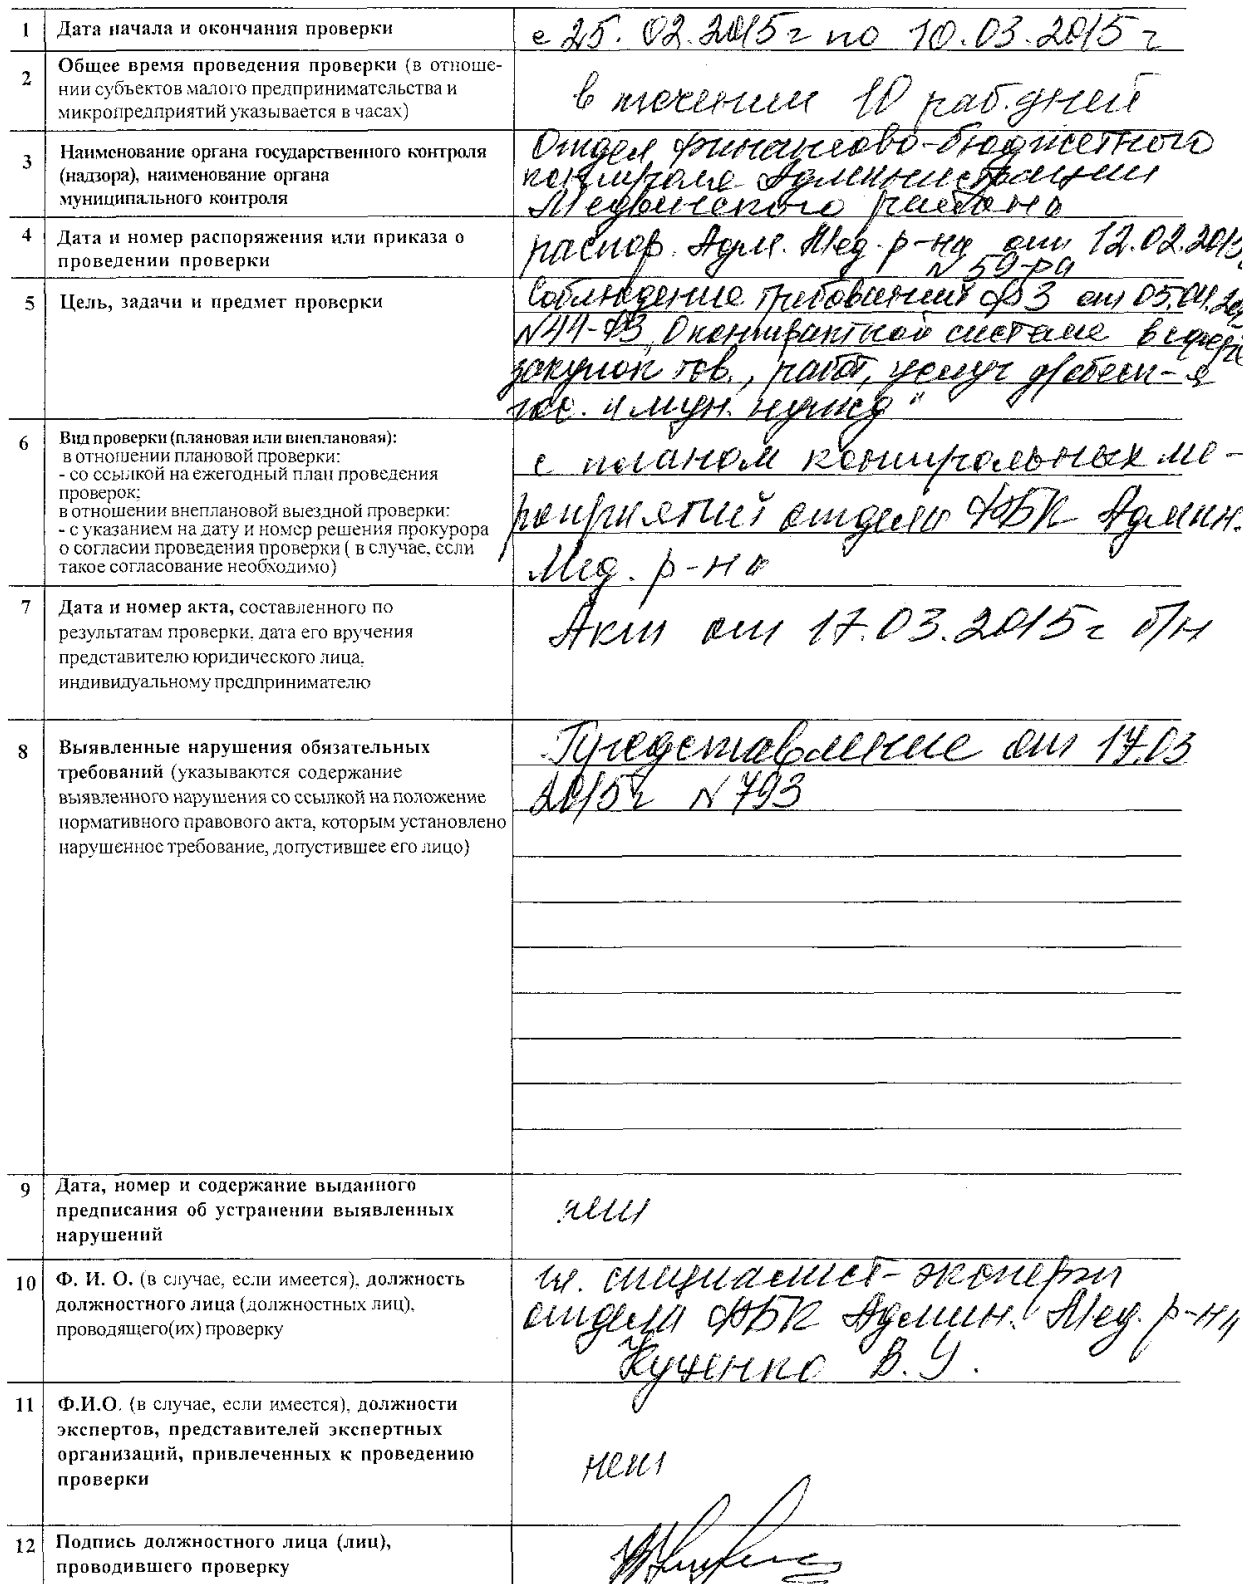 1 Дата начала и окончания проверки
с 25.02.2015г по 10.03.2015г
2 Общее время проведения проверки (в отноше-
нии субъектов малого предпринимательства и
микропредприятий указывается в часах)
в течении 10 раб.дней
3 Наименование органа государственного контроля
(надзора), наименование органа
муниципального контроля
Отдел финансово-бюджетного
контроля Администрации
Медвенского района
4 Дата и номер распоряжения или приказа о
проведении проверки
распор. Адм. Мед. р-на от 12.02.2015
N 59-ра
5 Цель, задачи и предмет проверки
Соблюдение требований ФЗ от 05.04.20
N44-ФЗ „О контрактной системе в сфере
закупок тов., работ, услуг д/обесп-я
гос. и мун. нужд"
6 Вид проверки (плановая или внеплановая):
в отношении плановой проверки:
- со ссылкой на ежегодный план проведения
проверок;
в отношении внеплановой выездной проверки:
- с указанием на дату и номер решения прокурора
о согласии проведения проверки ( в случае, если
такое согласование необходимо)
с планом контрольных ме-
роприятий отдела ФБК Админ.
Мед. р-на
7 Дата и номер акта, составленного по
результатам проверки, дата его вручения
представителю юридического лица,
индивидуальному предпринимателю
Акт от 17.03.2015г б/н
8 Выявленные нарушения обязательных
требований (указываются содержание
выявленного нарушения со ссылкой на положение
нормативного правового акта, которым установлено
нарушенное требование, допустившее его лицо)
Представление от 17.03
2015г N793
9 Дата, номер и содержание выданного
предписания об устранении выявленных
нарушений
нет
10 Ф. И. О. (в случае, если имеется), должность
должностного лица (должностных лиц),
проводящего(их) проверку
гл. специалист-эксперт
отдела ФБК Админ. Мед. р-на
В.У.
11 Ф.И.О. (в случае, если имеется), должности
экспертов, представителей экспертных
организаций, привлеченных к проведению
проверки
нет
12 Подпись должностного лица (лиц),
проводившего проверку